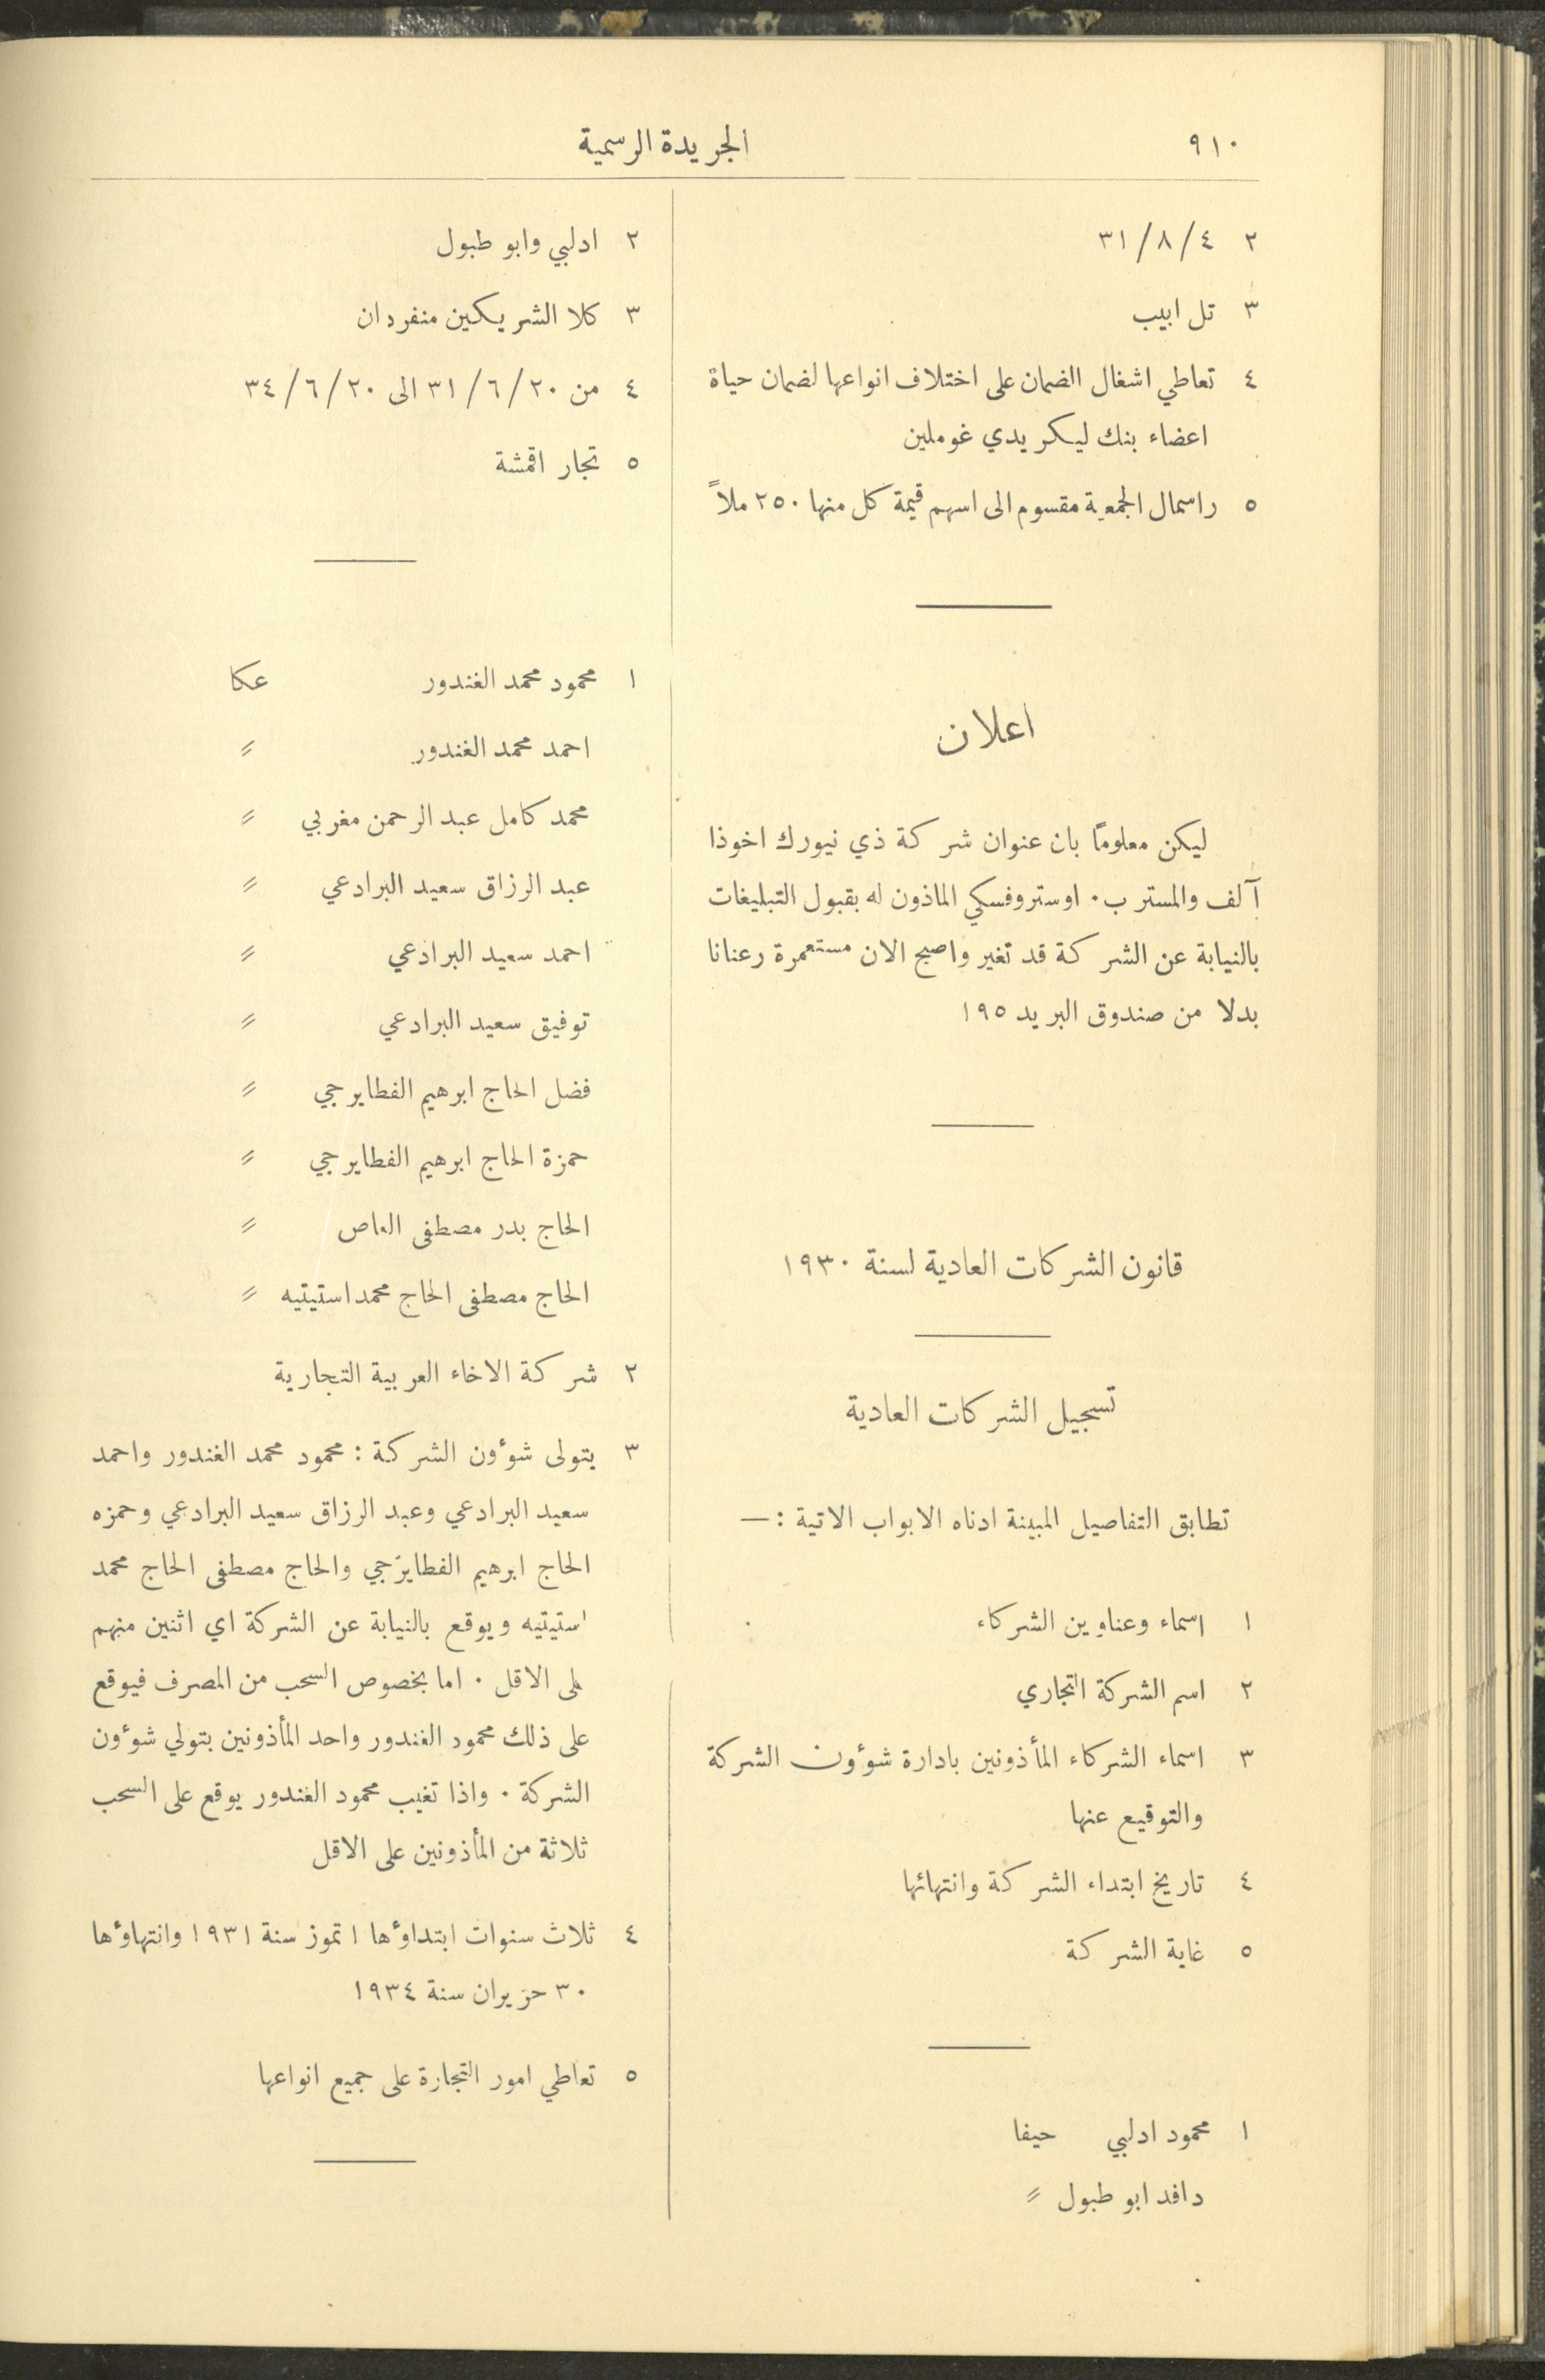 ٩١٠
الجريدة الرسمية
٢ ٤/٨/٣١
٣ تل ابيب
٤ تعاطي اشغال الضمان على اختلاف انواعها لضمان حياة
اعضاء بنك ليكريدي غوملين
٥ راسمال الجمعية مقسوم الى اسهم قيمة كل منها ٢٥٠ ملاً
اعلان
ليكن معلومًا بان عنوان شركة ذي نيورك اخوذا
آلف والمستر ب. اوستروفسكي الماذون له بقبول التبليغات
بالنيابة عن الشركة قد تغير واصبح الان مستعمرة رعنانا
بدلا من صندوق البريد ١٩٥
قانون الشركات العادية لسنة ١٩٣٠
تسجيل الشركات العادية
تطابق التفاصيل المبينة ادناه الابواب الاتية :—
١ اسماء وعناوين الشركاء
٢ اسم الشركة التجاري
٣ اسماء الشركاء المأذونين بادارة شوءون الشركة
والتوقيع عنها
٤ تاريخ ابتداء الشركة وانتهائها
٥ غاية الشركة
١ محمود ادلبي حيفا
دافد ابو طبول 〃
٢ ادلبي وابو طبول
٣ كلا الشريكين منفردان
٤ من ٢٠/٦/٣١ الى ٢٠/٦/٣٤
٥ تجار اقمشة
١ محمود محمد الغندور عكا
احمد محمد الغندور 〃
محمد كامل عبد الرحمن مغربي 〃
عبد الرزاق سعيد البرادعي 〃
احمد سعيد البرادعي 〃
توفيق سعيد البرادعي 〃
فضل الحاج ابرهيم الفطايرجي 〃
حمزة الحاج ابرهيم الفطايرجي 〃
الحاج بدر مصطفى العاص 〃
الحاج مصطفى الحاج محمد استيتيه 〃
٢ شركة الاخاء العربية التجارية
٣ يتولى شوءون الشركة : محمود محمد الغندور واحمد
سعيد البرادعي وعبد الرزاق سعيد البرادعي وحمزه
الحاج ابرهيم الفطايرجي والحاج مصطفى الحاج محمد
استيتيه ويوقع بالنيابة عن الشركة اي اثنين منهم
على الاقل . اما بخصوص السحب من المصرف فيوقع
على ذلك محمود الغندور واحد المأذونين بتولي شوءون
الشركة . واذا تغيب محمود الغندور يوقع على السحب
ثلاثة من المأذونين على الاقل
٤ ثلاث سنوات ابتداوءها ١ تموز سنة ١٩٣١ وانتهاوءها
٣٠ حزيران سنة ١٩٣٤
٥ تعاطي امور التجارة على جميع انواعها